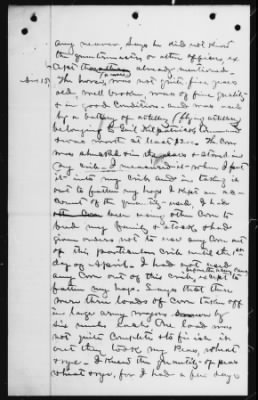 any receiver, Says he did not know
the quartermaster or other officers, ex
cept those already mentioned.
The horse was not quite five years
old, well broken, was of fine quality
& in good condition - and was used
by a battery of artillery (flying artillery
belonging to Genl Kilpatricks Command
& was worth at least $200. The Corn
was shucked & stored in
my crib - I measured it when I put
it into my crib and in taking it
out to fatten my hogs I kept an ac-
count of the quantity used, I had
been using other Corn to
feed my family & stock & had
given orders not to use any Corn out
of this particular crib until the 1st
day of April. I had not used
any Corn out of this crib, except to
fatten my hogs. Says that there
were three loads of Corn taken off
in large army wagons drawn by
six mules each. One load was
not quite complete & to finish it
out they took my Peas, wheat
& rye. I knew the quantity of peas
wheat & rye, for I had a few days